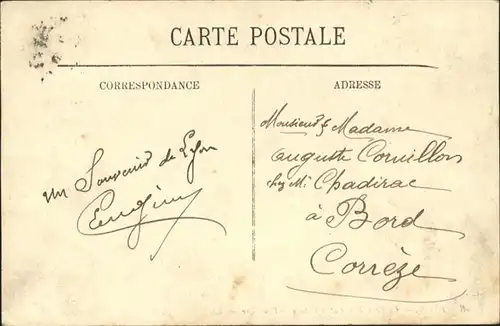 CARTE POSTALE
CORRESPONDANCE
un Souvenir de Lyon
Eugénie
ADRESSE
Monsieur & Madame
Auguste Cornillon
chez Mr Chadirac
à Bord
Corrèze